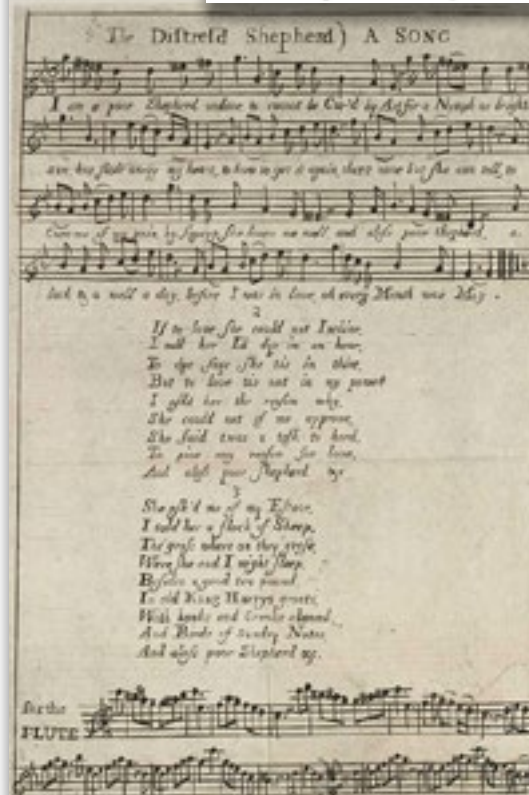 The Diſtreſ'd Shepherd) A SONG
I am a poor Shepherd undone & cannot be Cur'd by Art for a Nymph as bright
sun, has ſtole away my heart, & how to get it again, there none but ſhe can tell, to
Cure me of my pain, by ſaying ſhe loves me well and alaſs poor ſhepherd, a-
lack & a well a day, before I was in love, oh every Month was May.
2
If to love ſhe could not Incline,
I told her I'd dye in an hour,
To dye ſays ſhe 'tis in thine,
But to love 'tis not in my power
I aſk'd her the reaſon why,
She could not of me approve,
She ſaid 'twas a taſk to hard,
To give any reaſon for love,
And alaſs poor Shepherd &c
3
She aſk'd me of my Eſtate,
I told her a flock of Sheep,
The graſs where on they graze,
Where ſhe and I might ſleep,
Beſides a good ten pound
In old King Harrys groats,
With hooks and Crooks abound,
And Birds of Sundry Notes,
And alaſs poor Shepherd &c.
for the
FLUTE